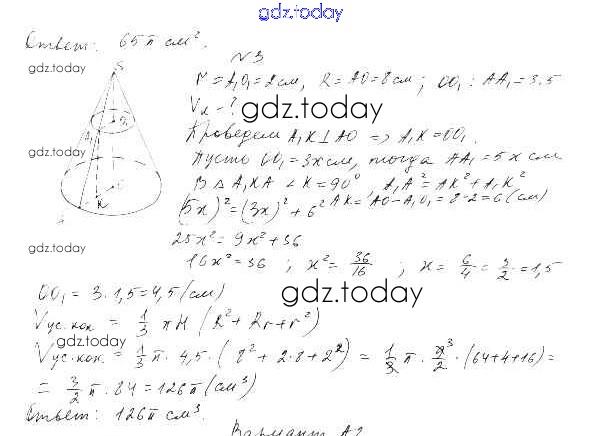 gdz.today
Ответ: 65π см².
gdz.today
N 3
r = A₁O₁ = 2 см, R = AO = 8 см; OO₁ : AA₁ = 3:5
V - ?
gdz.today
Проведем A₁K ⊥ AO => A₁K = OO₁.
gdz.today
Пусть OO₁ = 3x см, тогда AA₁ = 5x см
В Δ A₁KA ∠K = 90°, A₁A² = AK² + A₁K²
(5x)² = (3x)² + 6² AK = AO - A₁O₁ = 8 - 2 = 6 (см)
25x² = 9x² + 36
gdz.today
16x² = 36 ; x² = 36/16 ; x = 6/4 = 3/2 = 1,5
OO₁ = 3 · 1,5 = 4,5 (см)
gdz.today
Vус.кон = 1/3 πH (R² + Rr + r²)
gdz.today
Vус.кон = 1/3 π · 4,5 · (8² + 2·8 + 2²) = 1/3 π · 9³/2 · (64+4+16) =
= 3/2 π · 84 = 126π (см³)
Ответ: 126π см³.
gdz.today
Вариант А2